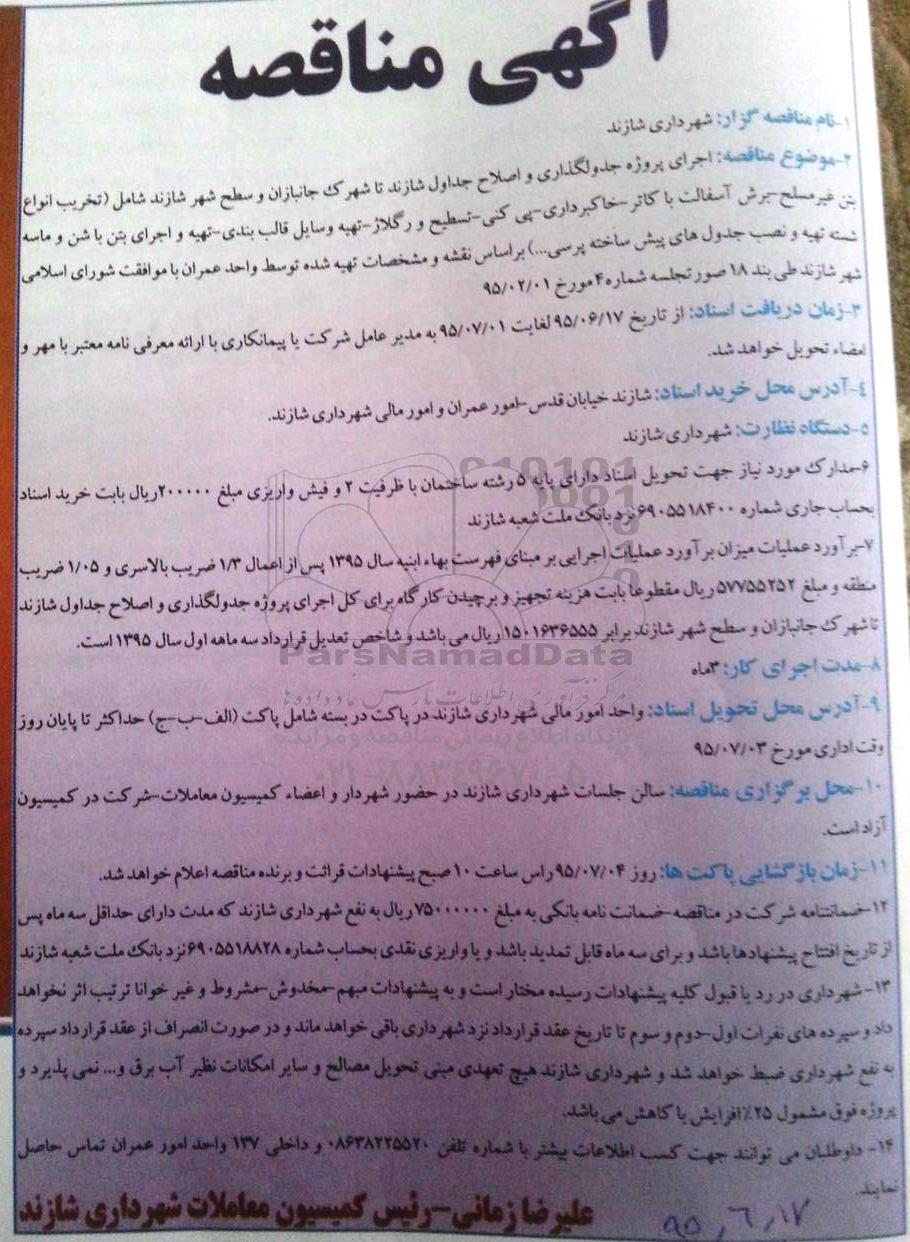 آگهی مناقصه
۱-نام مناقصه گزار: شهرداری شازند
۲-موضوع مناقصه: اجرای پروژه جدولگذاری و اصلاح جداول شازند تا شهرک جانبازان و سطح شهر شازند شامل (تخریب انواع
بتن غیرمسلح-برش آسفالت با کاتر-خاکبرداری-پی کنی-تسطیح و رگلاژ-تهیه وسایل قالب بندی-تهیه و اجرای بتن با شن و ماسه
شسته تهیه و نصب جدول های پیش ساخته پرسی...) براساس نقشه و مشخصات تهیه شده توسط واحد عمران با موافقت شورای اسلامی
شهر شازند طی بند ۱۸ صورتجلسه شماره ۴ مورخ ۹۵/۰۲/۰۱
۳-زمان دریافت اسناد: از تاریخ ۹۵/۰۶/۱۷ لغایت ۹۵/۰۷/۰۱ به مدیر عامل شرکت یا پیمانکاری با ارائه معرفی نامه معتبر با مهر و
امضاء تحویل خواهد شد.
۴-آدرس محل خرید اسناد: شازند خیابان قدس-امور عمران و امور مالی شهرداری شازند.
۵-دستگاه نظارت: شهرداری شازند
۶-مدارک مورد نیاز جهت تحویل اسناد دارای پایه ۵ رشته ساختمان با ظرفیت ۲ و فیش واریزی مبلغ ۲۰۰۰۰۰ ریال بابت خرید اسناد
بحساب جاری شماره ۶۹۰۵۵۱۸۴۰۰ نزد بانک ملت شعبه شازند
۷-برآورد عملیات میزان برآورد عملیات اجرایی بر مبنای فهرست بهاء ابنیه سال ۱۳۹۵ پس از اعمال ۱/۳ ضریب بالاسری و ۱/۰۵ ضریب
منطقه و مبلغ ۵۷۷۵۵۲۵۲ ریال مقطوعاً بابت هزینه تجهیز و برچیدن کارگاه برای کل اجرای پروژه جدولگذاری و اصلاح جداول شازند
تا شهرک جانبازان و سطح شهر شازند برابر ۱۵۰۱۶۳۶۵۵۵ ریال می باشد و شاخص تعدیل قرارداد سه ماهه اول سال ۱۳۹۵ است.
ParsNamadData
۸-مدت اجرای کار: ۳ماه
مرکز فرآوری اطلاعات پارس نماد داده ها
۹-آدرس محل تحویل اسناد: واحد امور مالی شهرداری شازند در پاکت در بسته شامل پاکت (الف-ب-ج) حداکثر تا پایان روز
پایگاه اطلاع رسانی مناقصه و مزایده
وقت اداری مورخ ۹۵/۰۷/۰۳
۰۲۱-۸۸۳۴۹۶۷۰-۵
۱۰-محل برگزاری مناقصه: سالن جلسات شهرداری شازند در حضور شهردار و اعضاء کمیسیون معاملات-شرکت در کمیسیون
آزاد است.
۱۱-زمان بازگشایی پاکت ها: روز ۹۵/۰۷/۰۴ راس ساعت ۱۰ صبح پیشنهادات قرائت و برنده مناقصه اعلام خواهد شد.
۱۲-ضمانتنامه شرکت در مناقصه-ضمانت نامه بانکی به مبلغ ۷۵۰۰۰۰۰۰ ریال به نفع شهرداری شازند که مدت دارای حداقل سه ماه پس
از تاریخ افتتاح پیشنهادها باشد و برای سه ماه قابل تمدید باشد و یا واریزی نقدی بحساب شماره ۶۹۰۵۵۱۸۸۲۸ نزد بانک ملت شعبه شازند
۱۳-شهرداری در رد یا قبول کلیه پیشنهادات رسیده مختار است و به پیشنهادات مبهم-مخدوش-مشروط و غیر خوانا ترتیب اثر نخواهد
داد و سپرده های نفرات اول-دوم و سوم تا تاریخ عقد قرارداد نزد شهرداری باقی خواهد ماند و در صورت انصراف از عقد قرارداد سپرده
به نفع شهرداری ضبط خواهد شد و شهرداری شازند هیچ تعهدی مبنی تحویل مصالح و سایر امکانات نظیر آب برق و... نمی پذیرد و
پروژه فوق مشمول ۲۵٪ افزایش یا کاهش می باشد.
۱۴- داوطلبان می توانند جهت کسب اطلاعات بیشتر با شماره تلفن ۰۸۶۳۸۲۲۵۵۲۰ و داخلی ۱۳۷ واحد امور عمران تماس حاصل
نمایند.
علیرضا زمانی-رئیس کمیسیون معاملات شهرداری شازند
۹۵/۶/۱۷